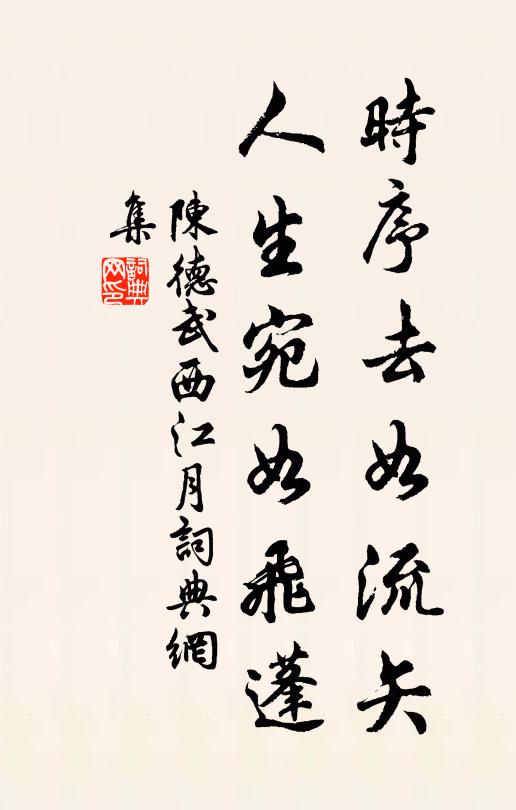 時序去如流矢
人生宛如飛蓬
陳德武西江月詞典網
集
詞典
网印